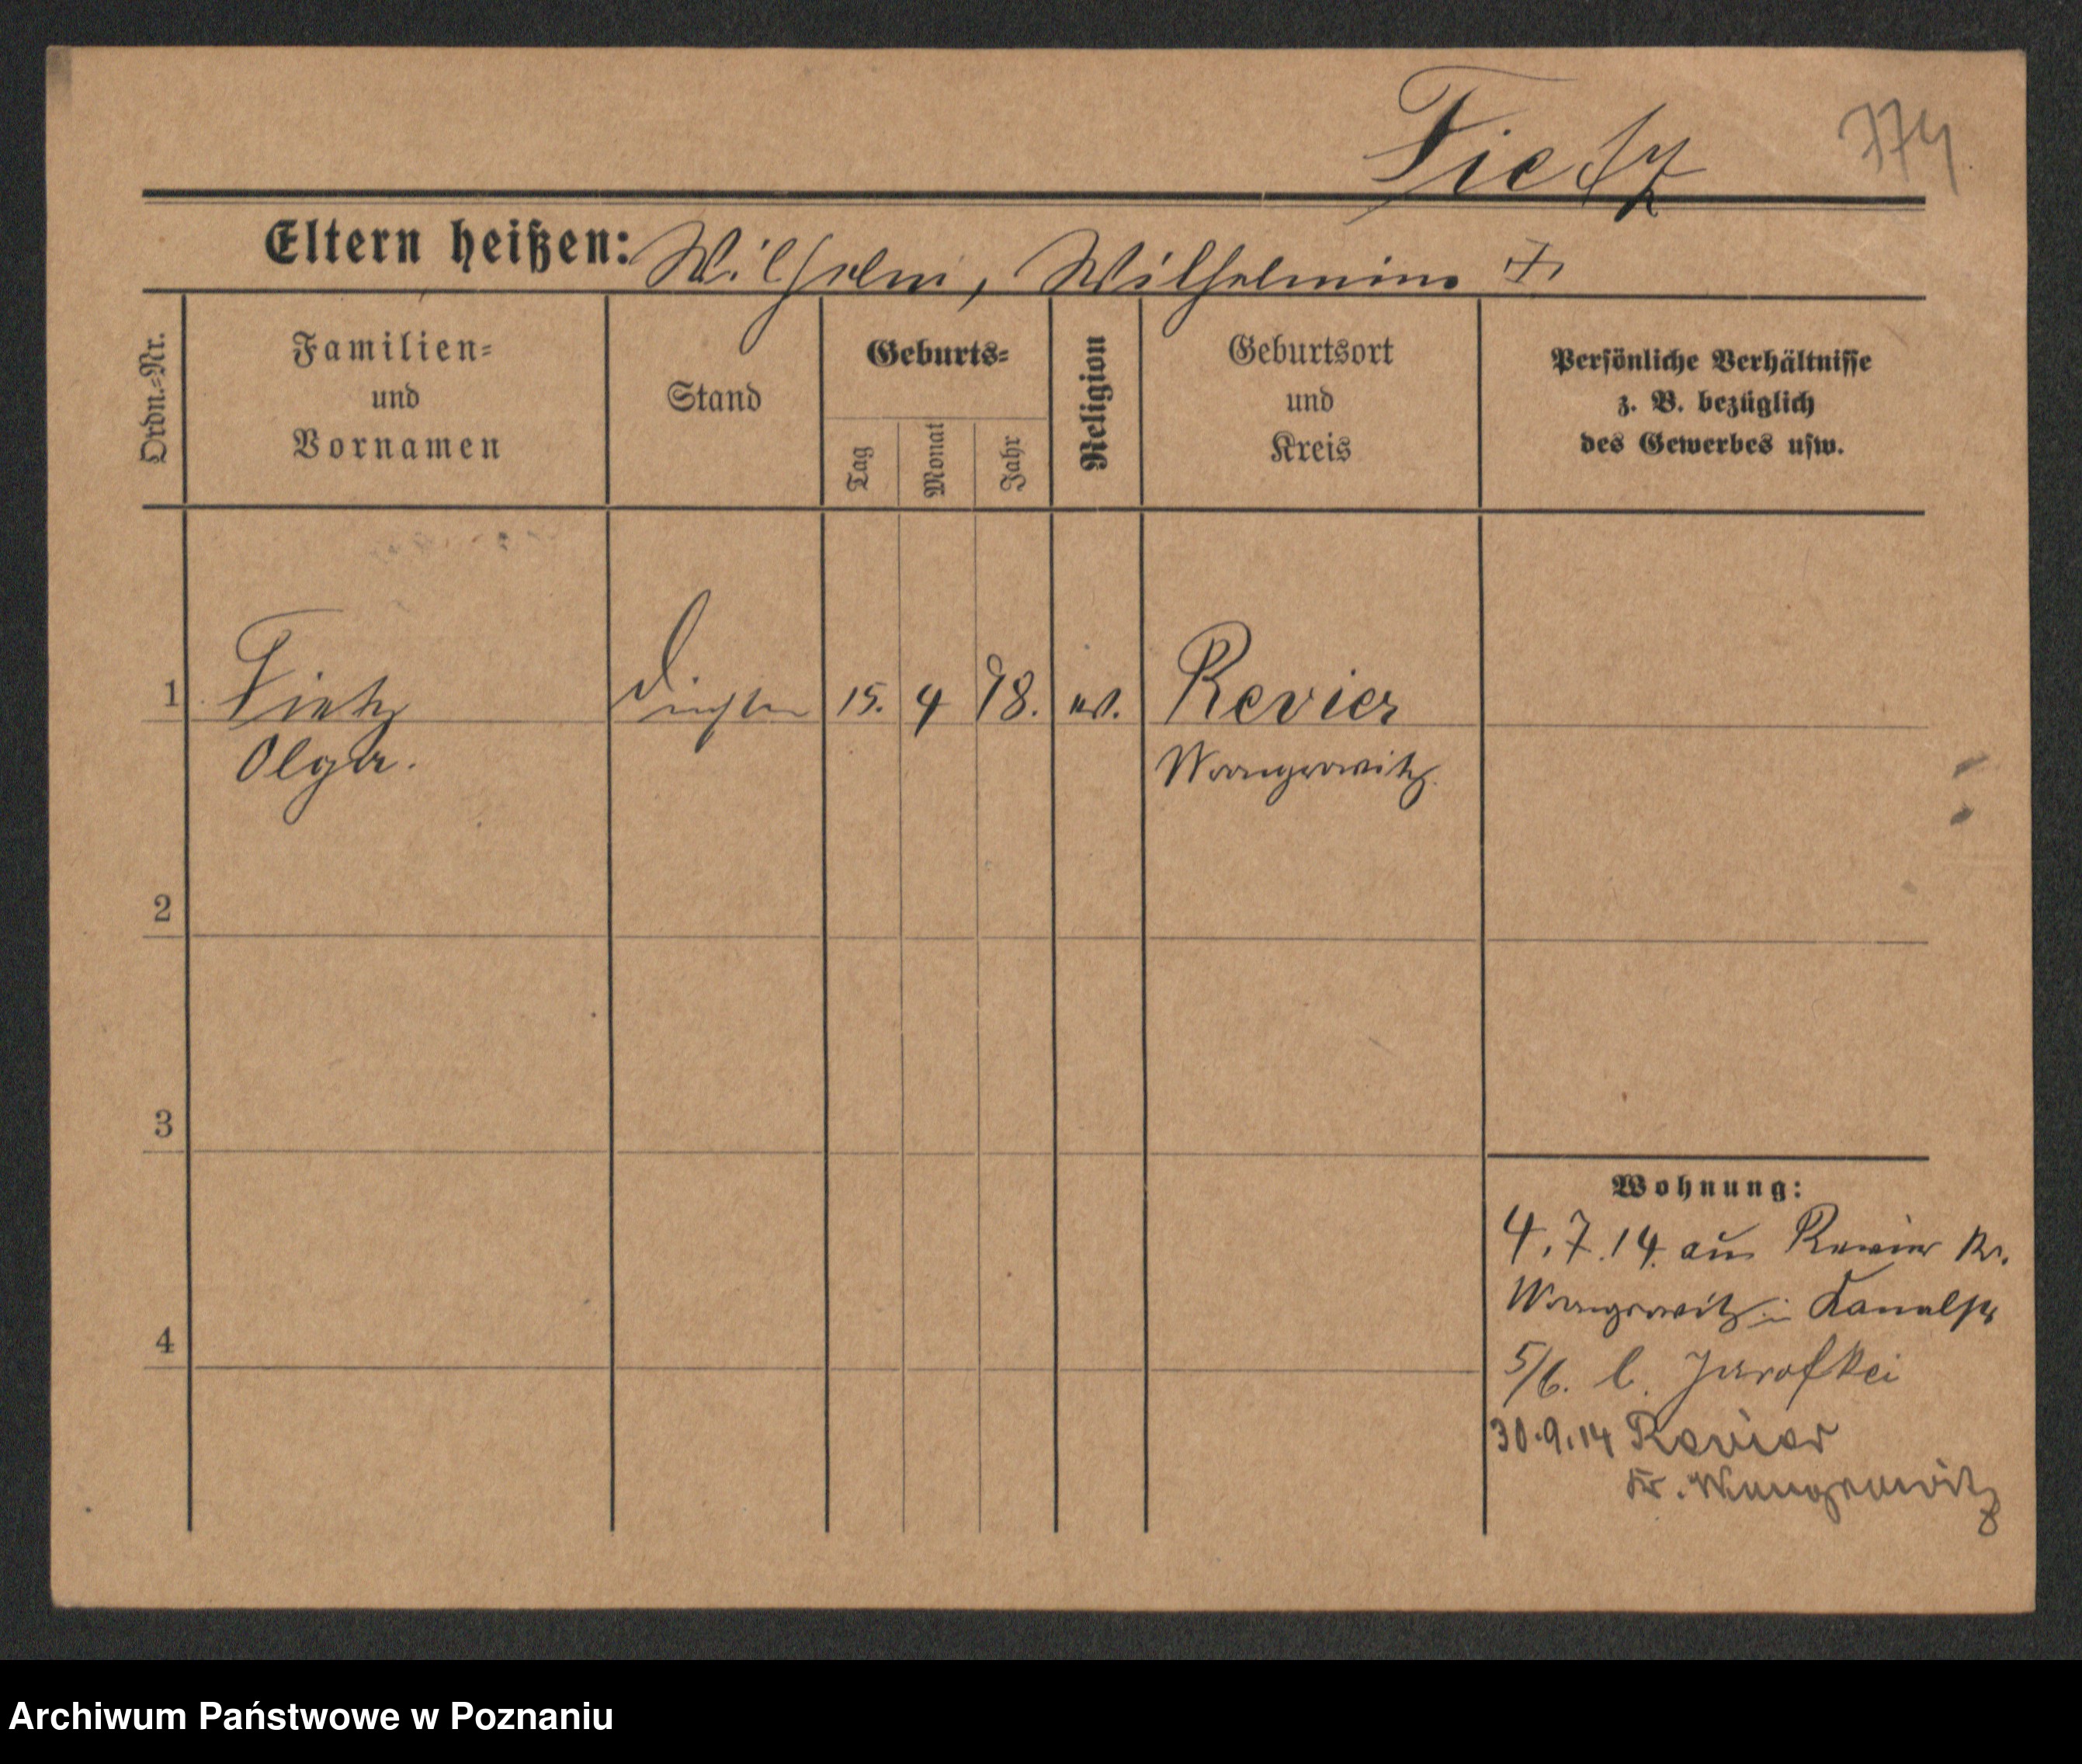 Tietz
774
Eltern heißen: Wilhelm, Wilhelmine +
Ordn.-Nr.
Familien-
und
Vornamen
Stand
Geburts-
Tag
Monat
Jahr
Religion
Geburtsort
und
Kreis
Persönliche Verhältnisse
z. B. bezüglich
des Gewerbes usw.
1 Tietz 15. 4 98. ev. Revier
Olga. Wongrowitz.
2
3
4
Wohnung:
4.7.14. aus Revier Kr.
Wongrowitz Kanalstr
5/6. b. Jarofkei
30.9.14 Revier
Kr. Wongrowitz
Archiwum Państwowe w Poznaniu